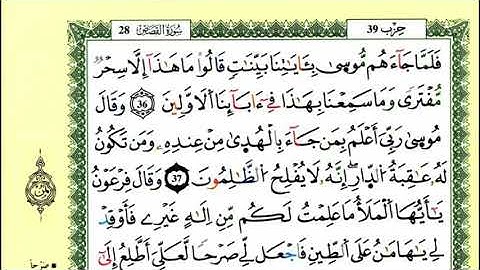 حزب 39
سورة القصص 28
فَلَمَّا جَآءَهُم مُّوسَىٰ بِـَٔايَٰتِنَا بَيِّنَٰتٍ قَالُوا۟ مَا هَٰذَآ إِلَّا سِحْرٌ
مُّفْتَرًى وَمَا سَمِعْنَا بِهَٰذَا فِىٓ ءَابَآئِنَا ٱلْأَوَّلِينَ 36 وَقَالَ
مُوسَىٰ رَبِّىٓ أَعْلَمُ بِمَن جَآءَ بِٱلْهُدَىٰ مِنْ عِندِهِۦ وَمَن تَكُونُ
لَهُۥ عَٰقِبَةُ ٱلدَّارِ إِنَّهُۥ لَا يُفْلِحُ ٱلظَّٰلِمُونَ 37 وَقَالَ فِرْعَوْنُ
يَٰٓأَيُّهَا ٱلْمَلَأُ مَا عَلِمْتُ لَكُم مِّنْ إِلَٰهٍ غَيْرِى فَأَوْقِدْ
لِى يَٰهَٰمَٰنُ عَلَى ٱلطِّينِ فَٱجْعَل لِّى صَرْحًا لَّعَلِّىٓ أَطَّلِعُ إِلَىٰٓ
ثمن
صَرْحًا